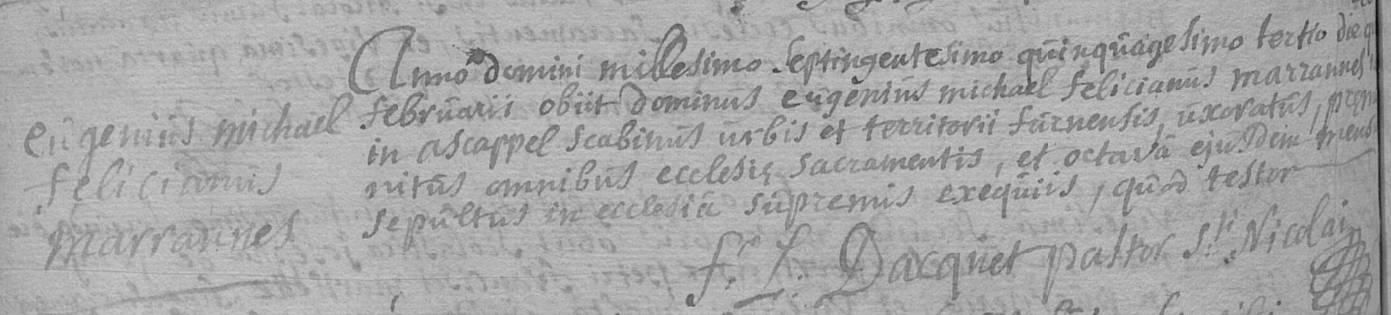 Anno domini millesimo septingentesimo quinquagesimo tertio die
februarii obiit dominus eugenius michael felicianus marrannes
in ascappel scabinus urbis et territorii furnensis, uxoratus, premu
nitus omnibus ecclesiæ sacramentis, et octava ejusdem mensis
sepultus in ecclesia supremis exequiis, quod testor
f. L. Dacquet pastor Sti. Nicolai
eugenius michael
felicianus
marrannes